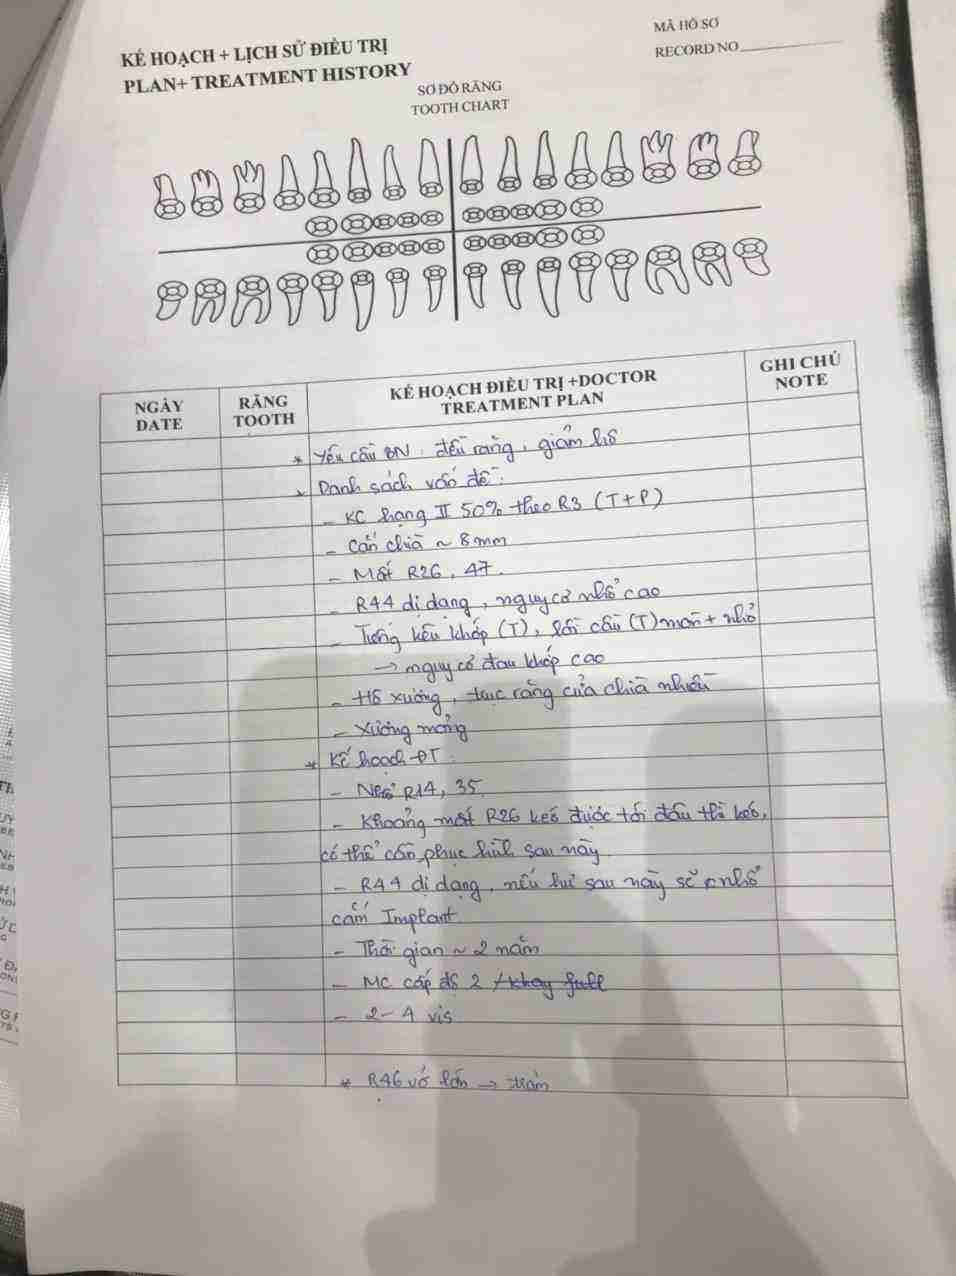 MÃ HỒ SƠ
RECORD NO
KẾ HOẠCH + LỊCH SỬ ĐIỀU TRỊ
PLAN+ TREATMENT HISTORY
SƠ ĐỒ RĂNG
TOOTH CHART
NGÀY
DATE
RĂNG
TOOTH
KẾ HOẠCH ĐIỀU TRỊ +DOCTOR
TREATMENT PLAN
GHI CHÚ
NOTE
* Yêu cầu BN: đều răng, giảm hô
* Danh sách vấn đề:
- KC hạng II 50% theo R3 (T+P)
- Cắn chìa ~ 8mm
- Mất R26, 47.
- R44 dị dạng, nguy cơ nhổ cao
- Tiếng kêu khớp (T), lồi cầu (T) mòn + nhỏ
→ nguy cơ đau khớp cao
- Hô xương, trục răng cửa chìa nhiều
- Xương mỏng
* Kế hoạch ĐT:
- Nhổ R14, 35.
- Khoảng mất R26 kéo được tới đâu thì kéo,
có thể cần phục hình sau này.
- R44 dị dạng, nếu hư sau này sẽ nhổ
cắm Implant
- Thời gian ~ 2 năm
- MC cấp độ 2 / khay full
- 2-4 vis
* R46 vỡ lớn → trám